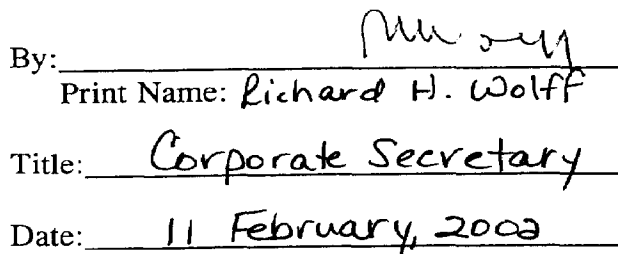 By:
Print Name: Richard H. Wolff
Title: Corporate Secretary
Date: 11 February, 2002